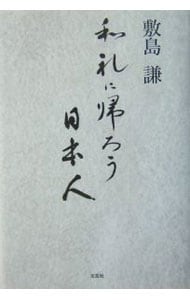 敷島 謙
和礼に帰ろう
日本人
文芸社